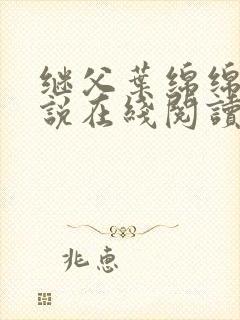 继父葉綿綿
說在綫閱讀
兆惠